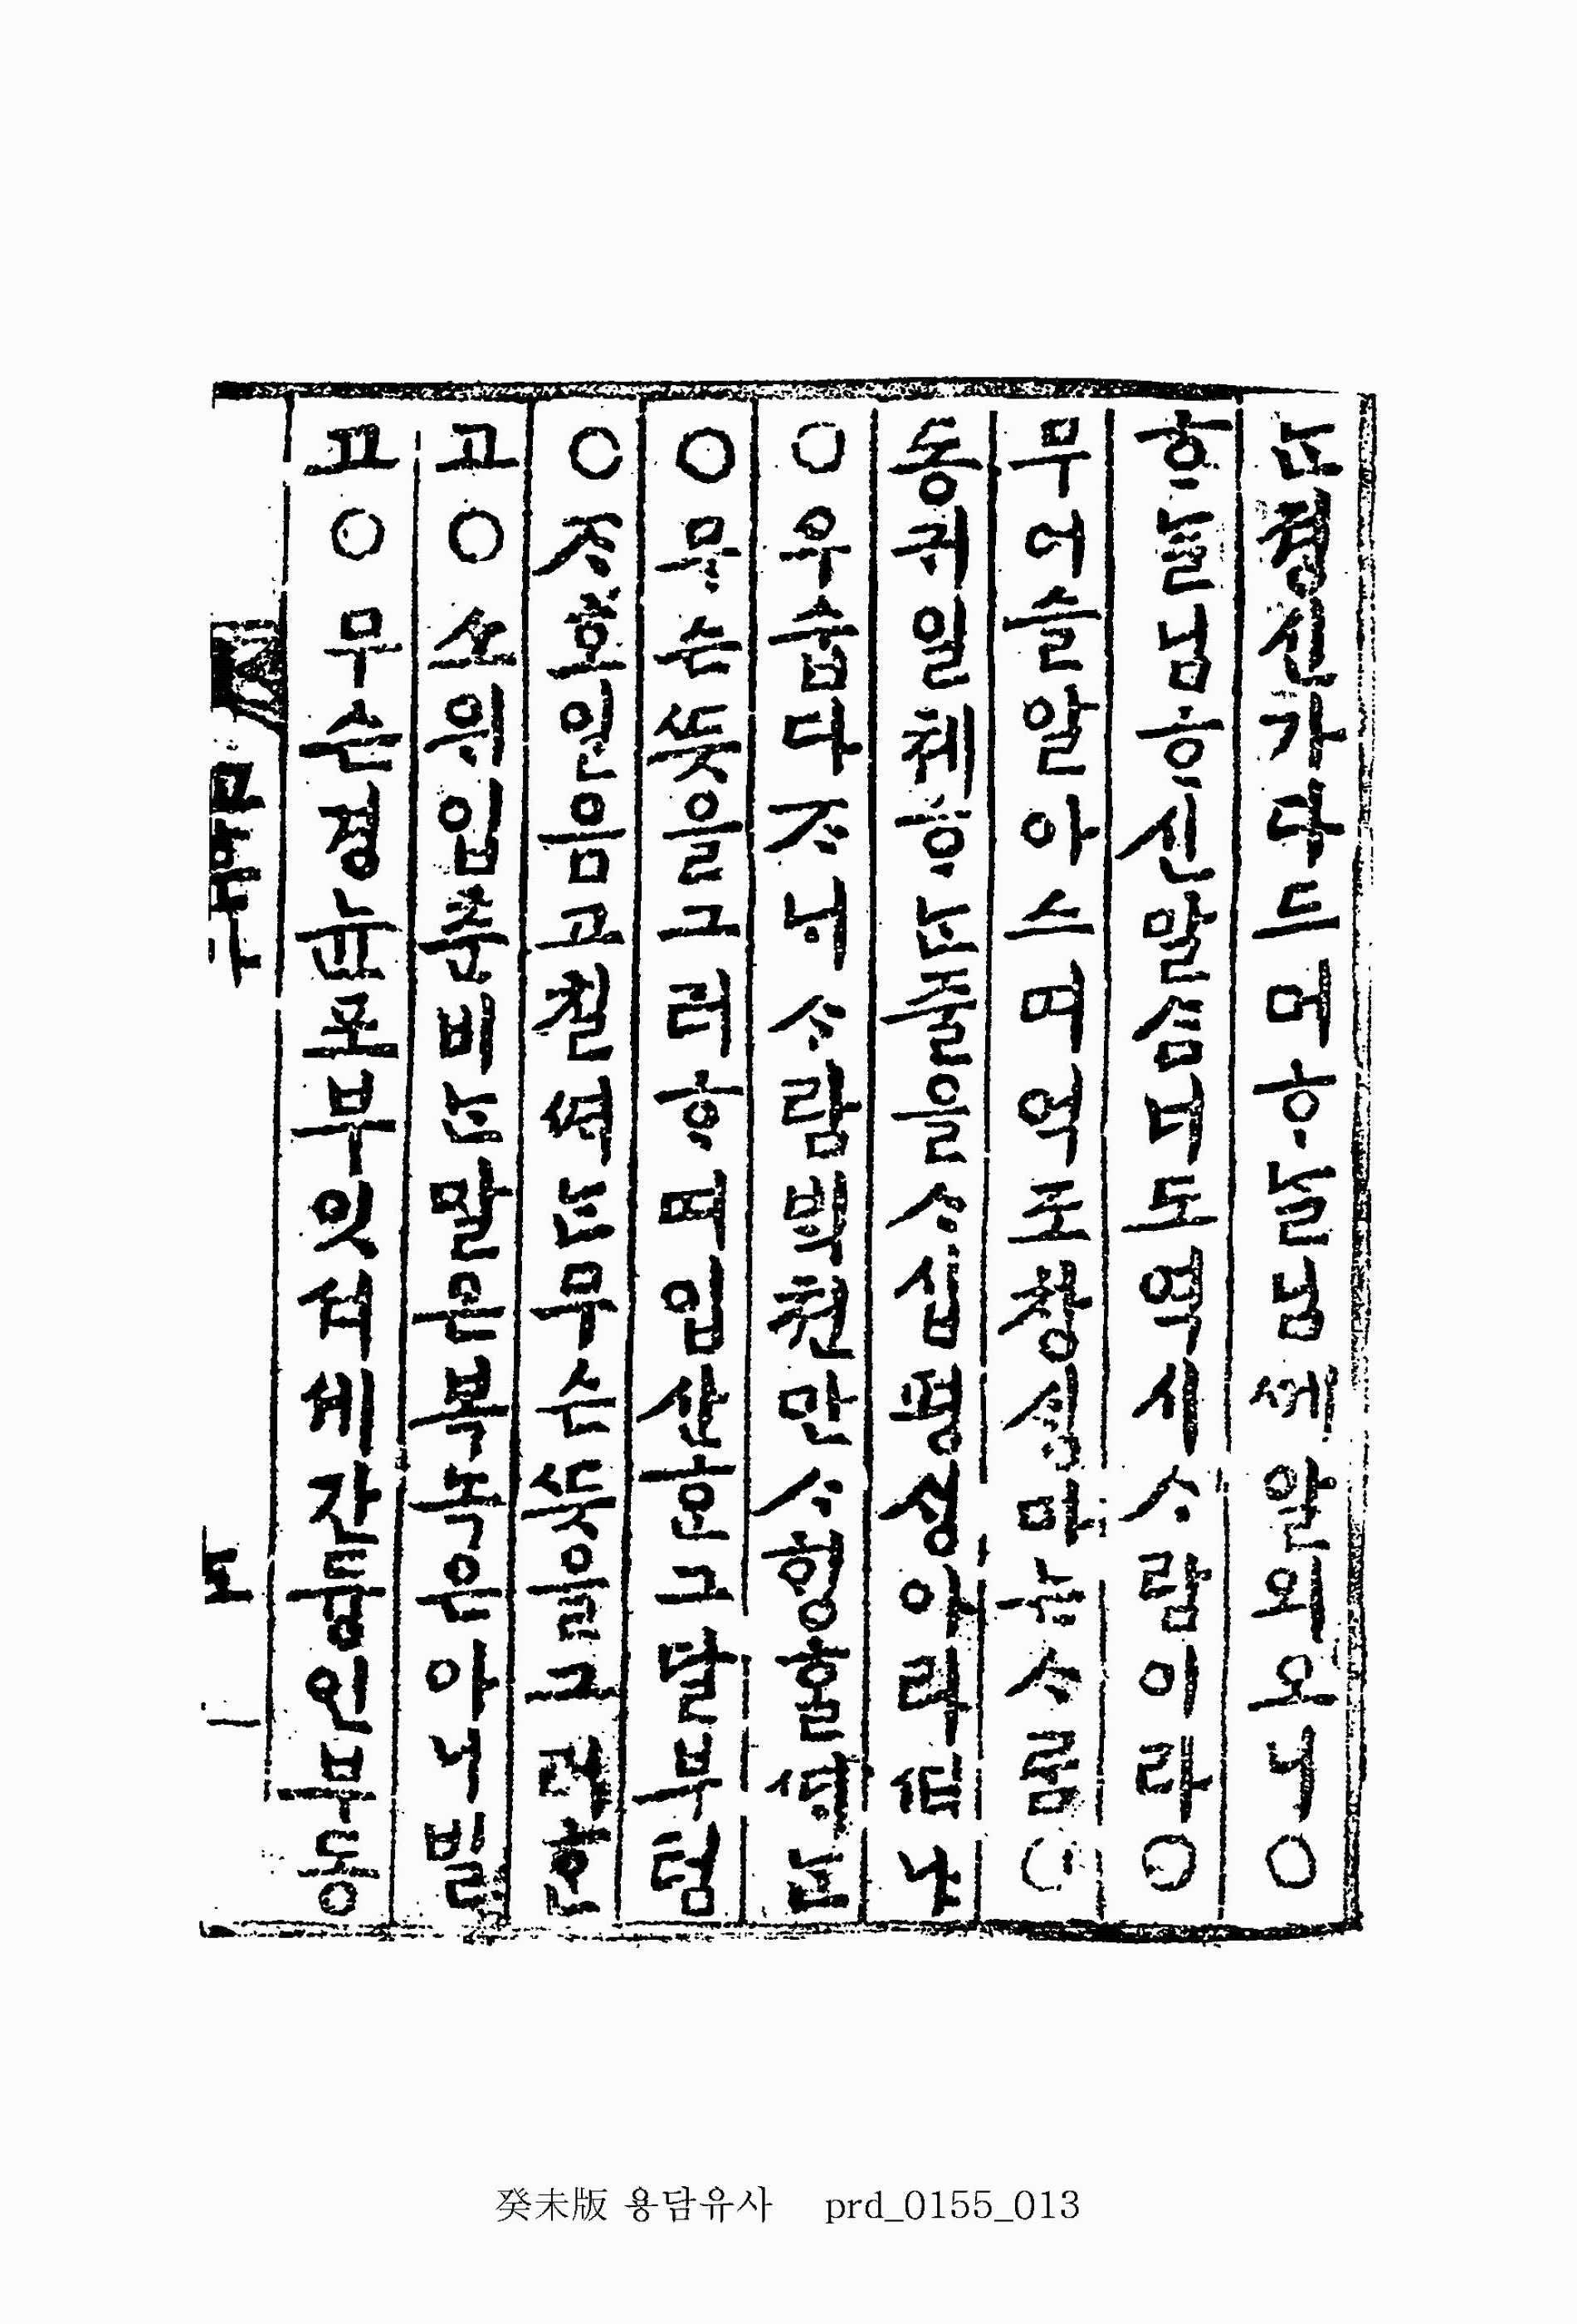 ᄂᆞᆫ졍신가다드머ᄒᆞᄂᆞᆯ님ᄭᅦ알외오니○
ᄒᆞᄂᆞᆯ님ᄒᆞ신말ᄉᆞᆷ너도역시ᄉᆞ람이라○
무어슬알아스며억조창ᄉᆡᆼ마ᄂᆞᆫᄉᆞᄅᆞᆷ○
동귀일쳬ᄒᆞᄂᆞᆫ줄을ᄉᆞ십평ᄉᆡᆼ아라ᄯᅥ냐
○우습다ᄌᆞᄂᆡᄉᆞ람ᄇᆡᆨ쳔만ᄉᆞᄒᆡᆼ홀ᄯᆡᄂᆞᆫ
○무슨ᄯᅳᆺ을그러ᄒᆞ며입산ᄒᆞᆫ그달부텀
○ᄌᆞ호일음고칠ᄯᅥᄂᆞᆫ무슨ᄯᅳᆺ을그러ᄒᆞᆫ
고○쇼위입츈비ᄂᆞᆫ말은복녹은아니빌
고○무슨경뉸포부잇셔셰간즁인부동
癸未版 용담유사 prd_0155_013